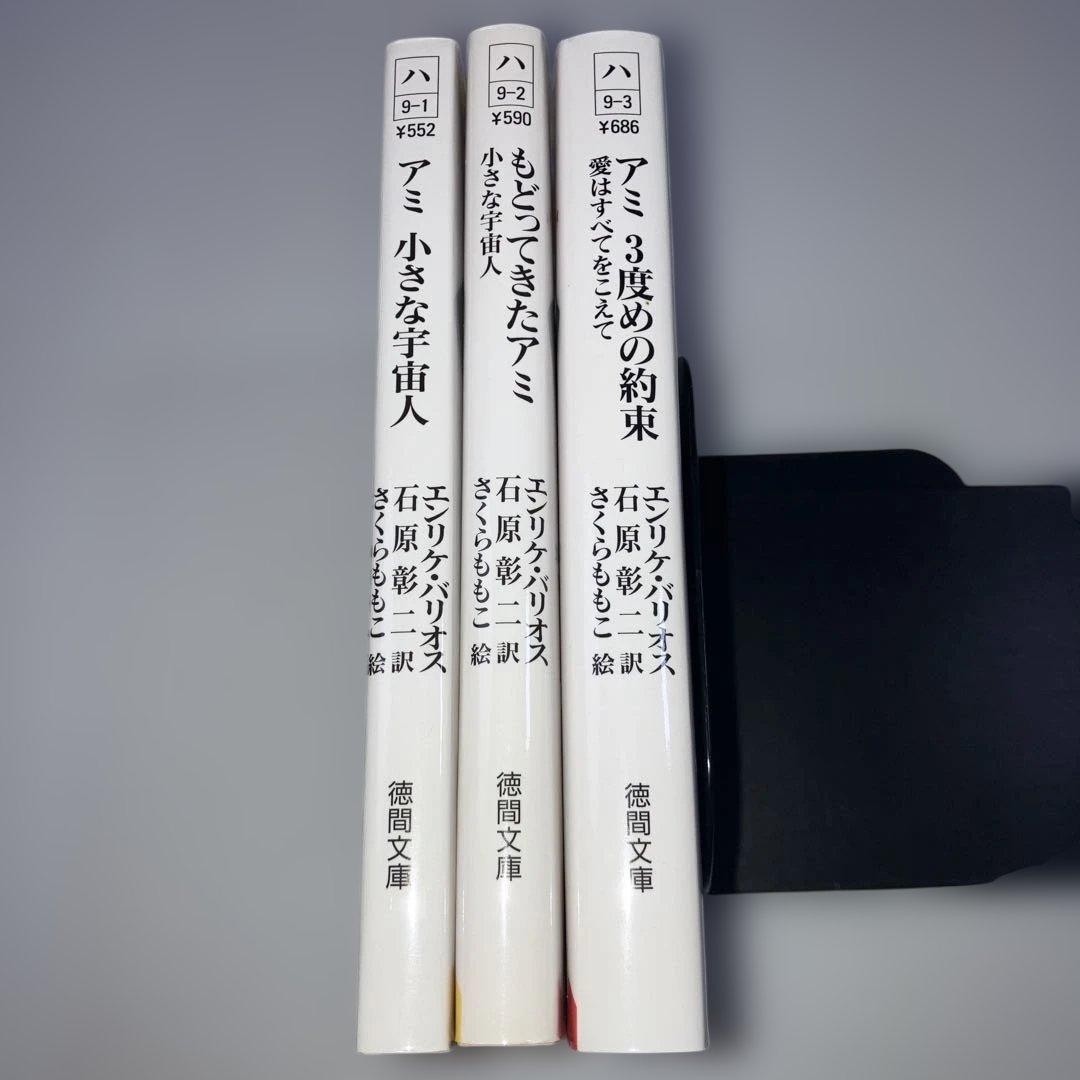 ハ
9-1
¥552
アミ 小さな宇宙人
エンリケ・バリオス
石原彰二 訳
さくらももこ 絵
徳間文庫
ハ
9-2
¥590
もどってきたアミ
小さな宇宙人
エンリケ・バリオス
石原彰二 訳
さくらももこ 絵
徳間文庫
ハ
9-3
¥686
アミ 3度めの約束
愛はすべてをこえて
エンリケ・バリオス
石原彰二 訳
さくらももこ 絵
徳間文庫